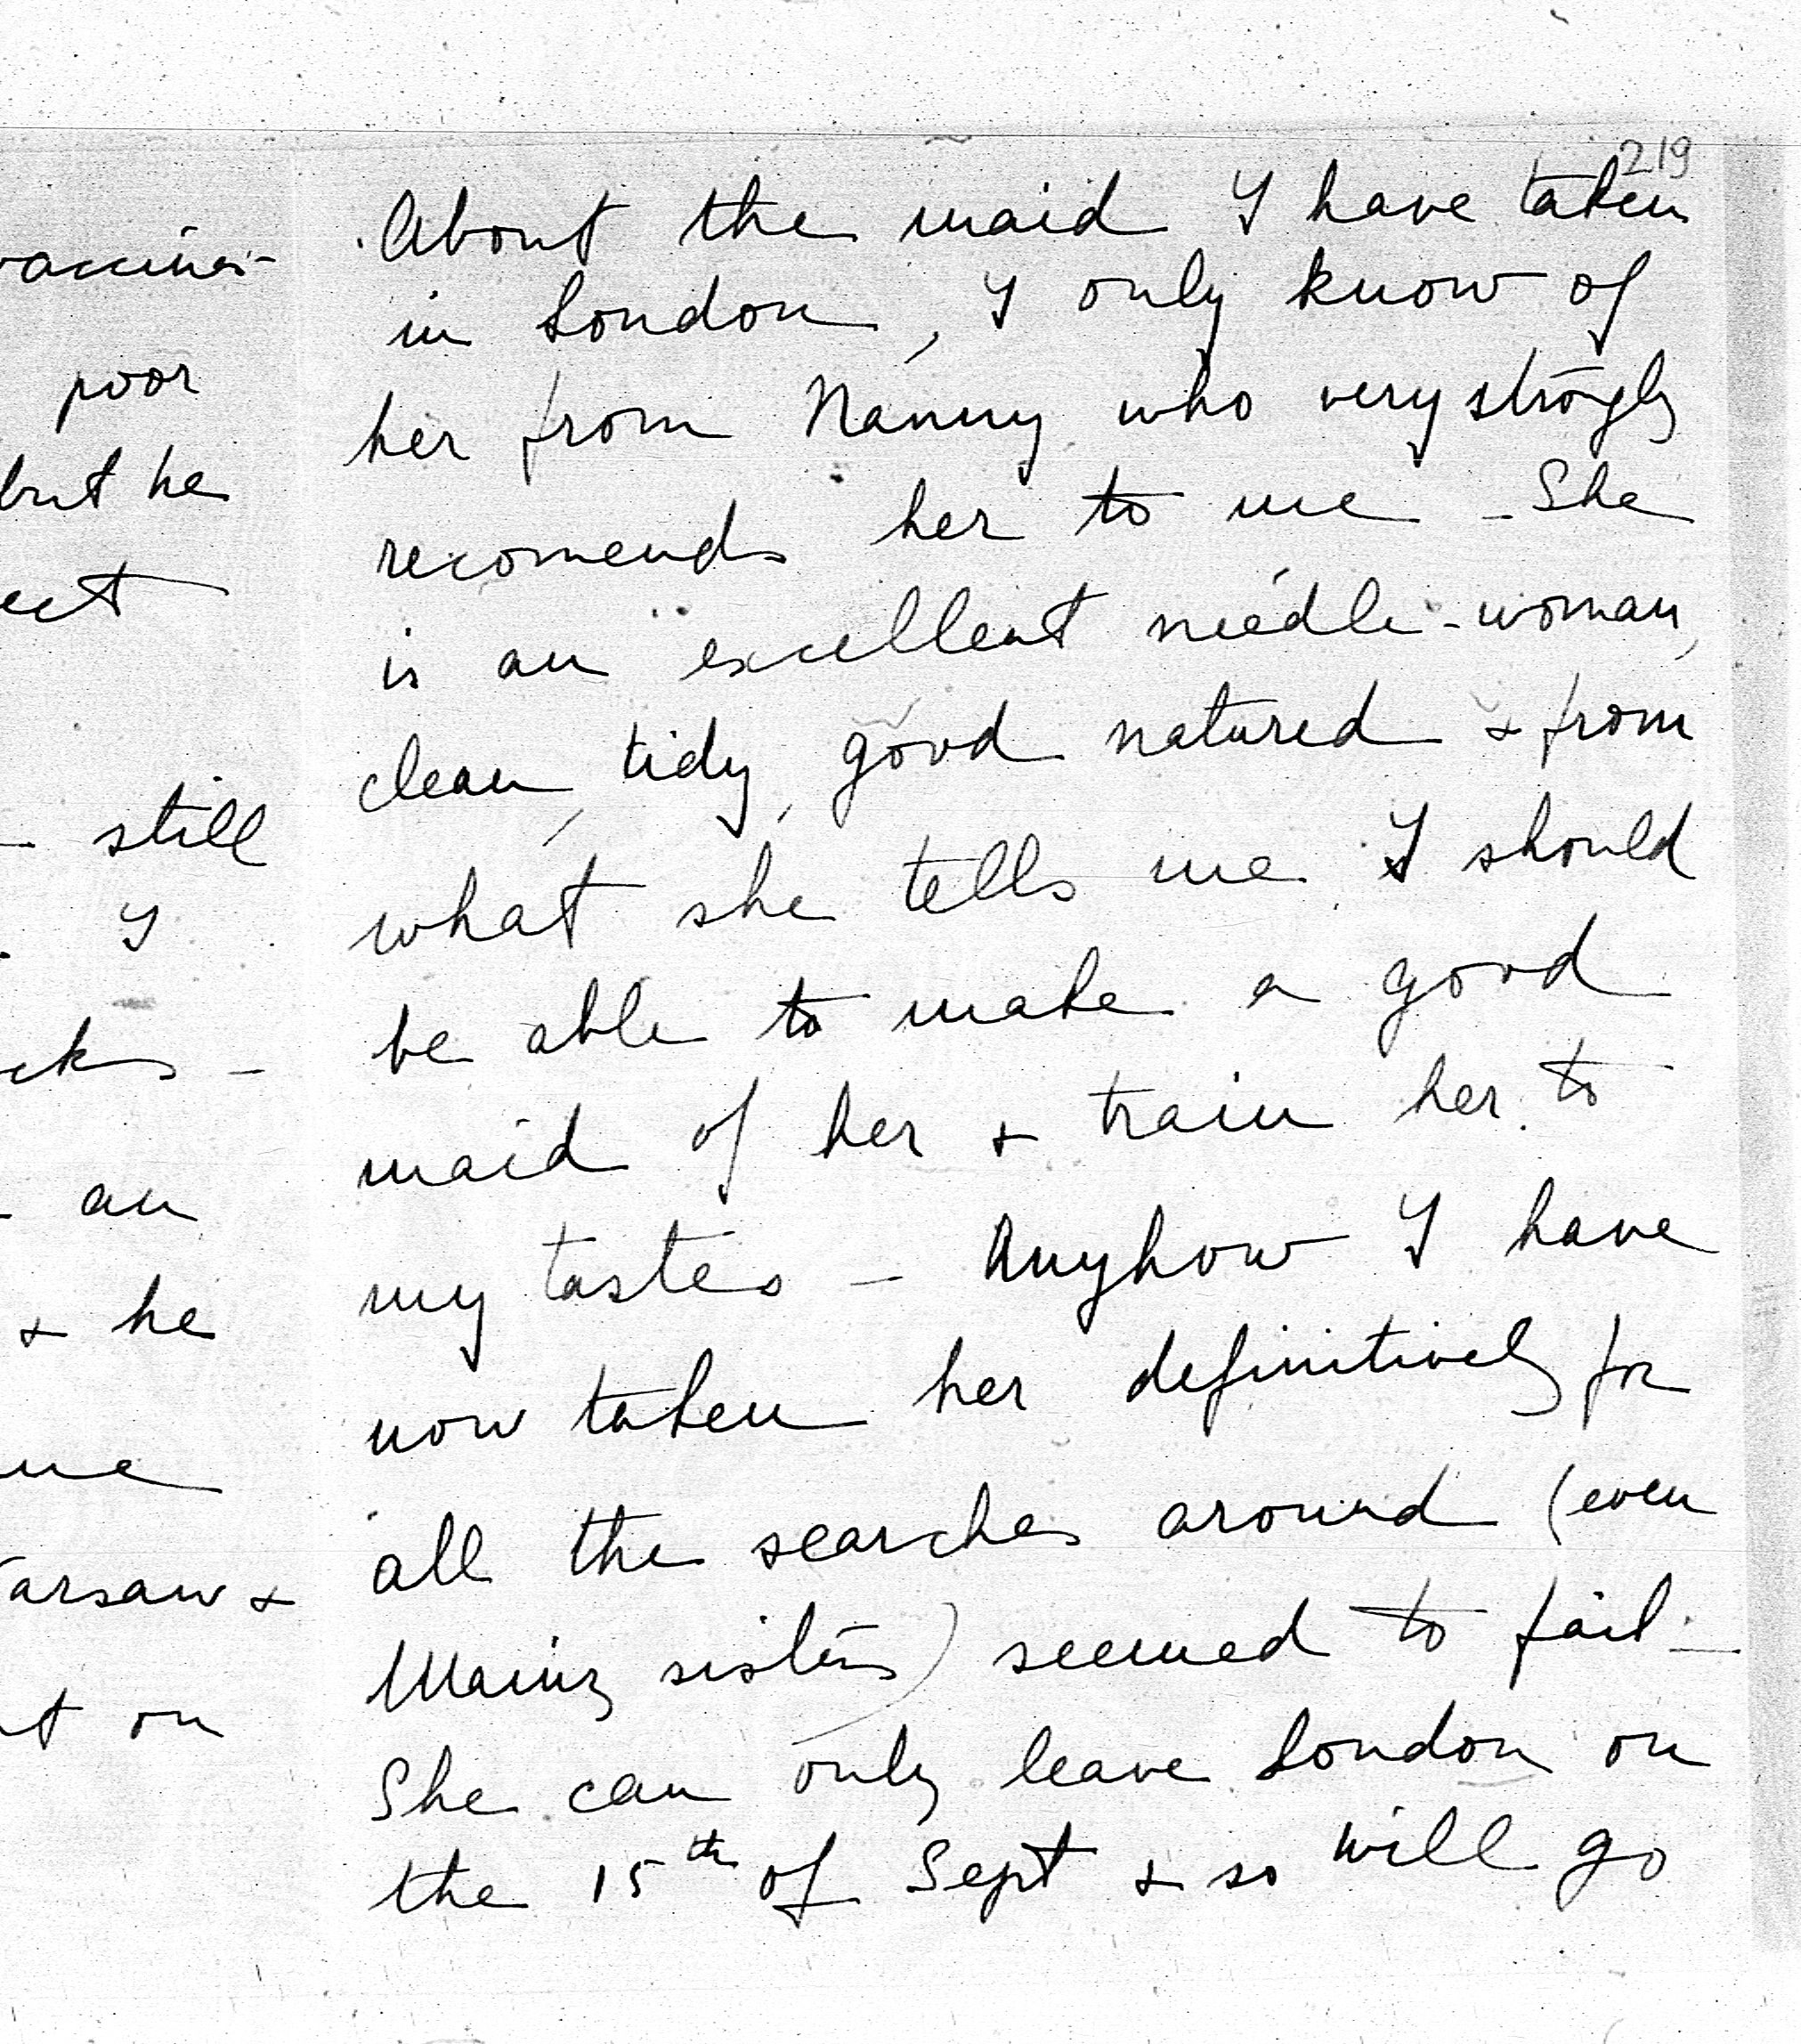 vaccines-
poor
but he
ect
- still
. I
cks -
- an
& he
me
arsaw &
t on
219
About the maid I have taken
in London, I only know of
her from Nanny who very strōgly
recomends her to me - She
is an excellent needle-woman,
clean, tidy, good natured & from
what she tells me I should
be able to make a good
maid of her & train her to
my tastes - Anyhow I have
now taken her definitively for
all the searches around (even
Mainz sisters) seemed to fail -
She can only leave London on
the 15th of Sept & so will go